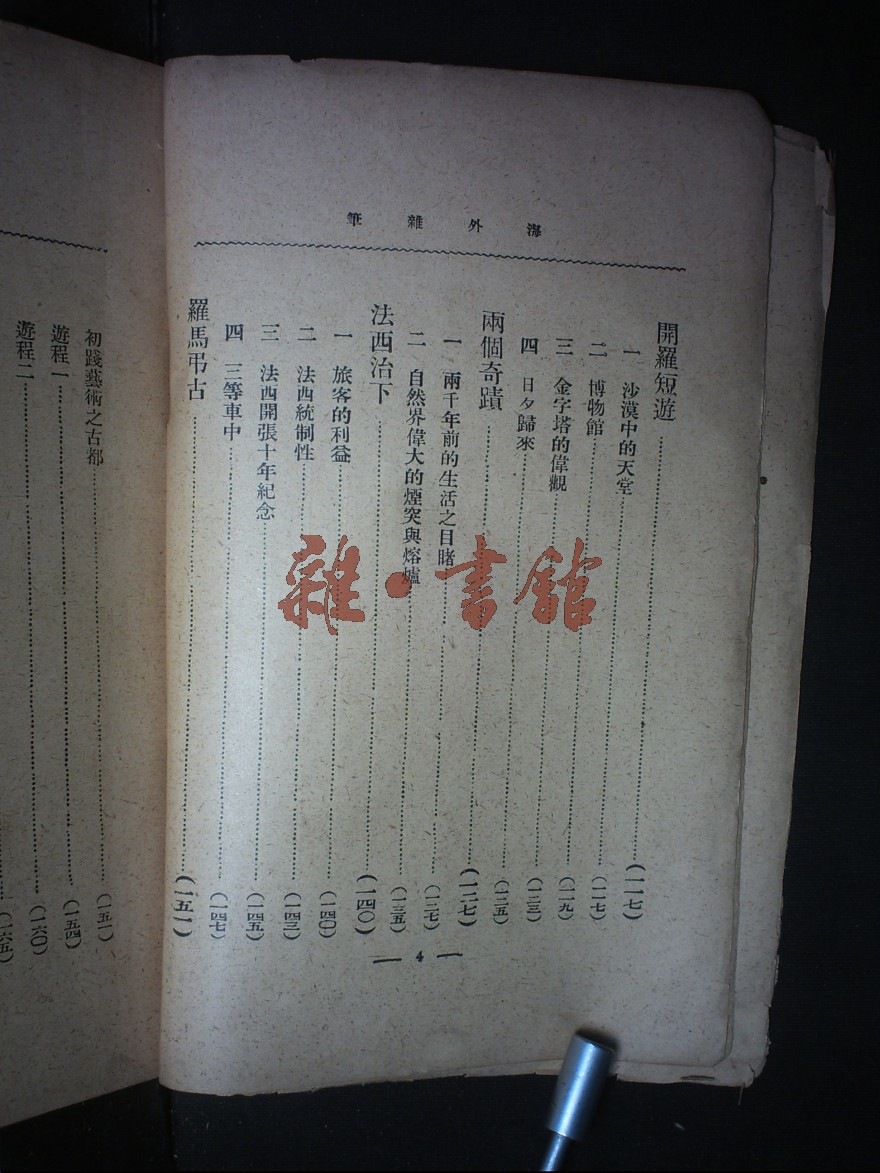 海外雜筆
開羅短遊(一一七)
一 沙漠中的天堂(一一七)
二 博物館(一一九)
三 金字塔的偉觀(一二三)
四 日夕歸來(一二五)
兩個奇蹟(一二七)
一 兩千年前的生活之目睹(一二七)
二 自然界偉大的煙突與熔爐(一三五)
法西治下(一四〇)
一 旅客的利益(一四〇)
二 法西統制性(一四三)
三 法西開張十年紀念(一四五)
四 三等車中(一四七)
羅馬弔古(一五一)
— 4 —
初踐藝術之古都(一五一)
遊程一(一五四)
遊程二(一六〇)
(一六五)
雜·書館